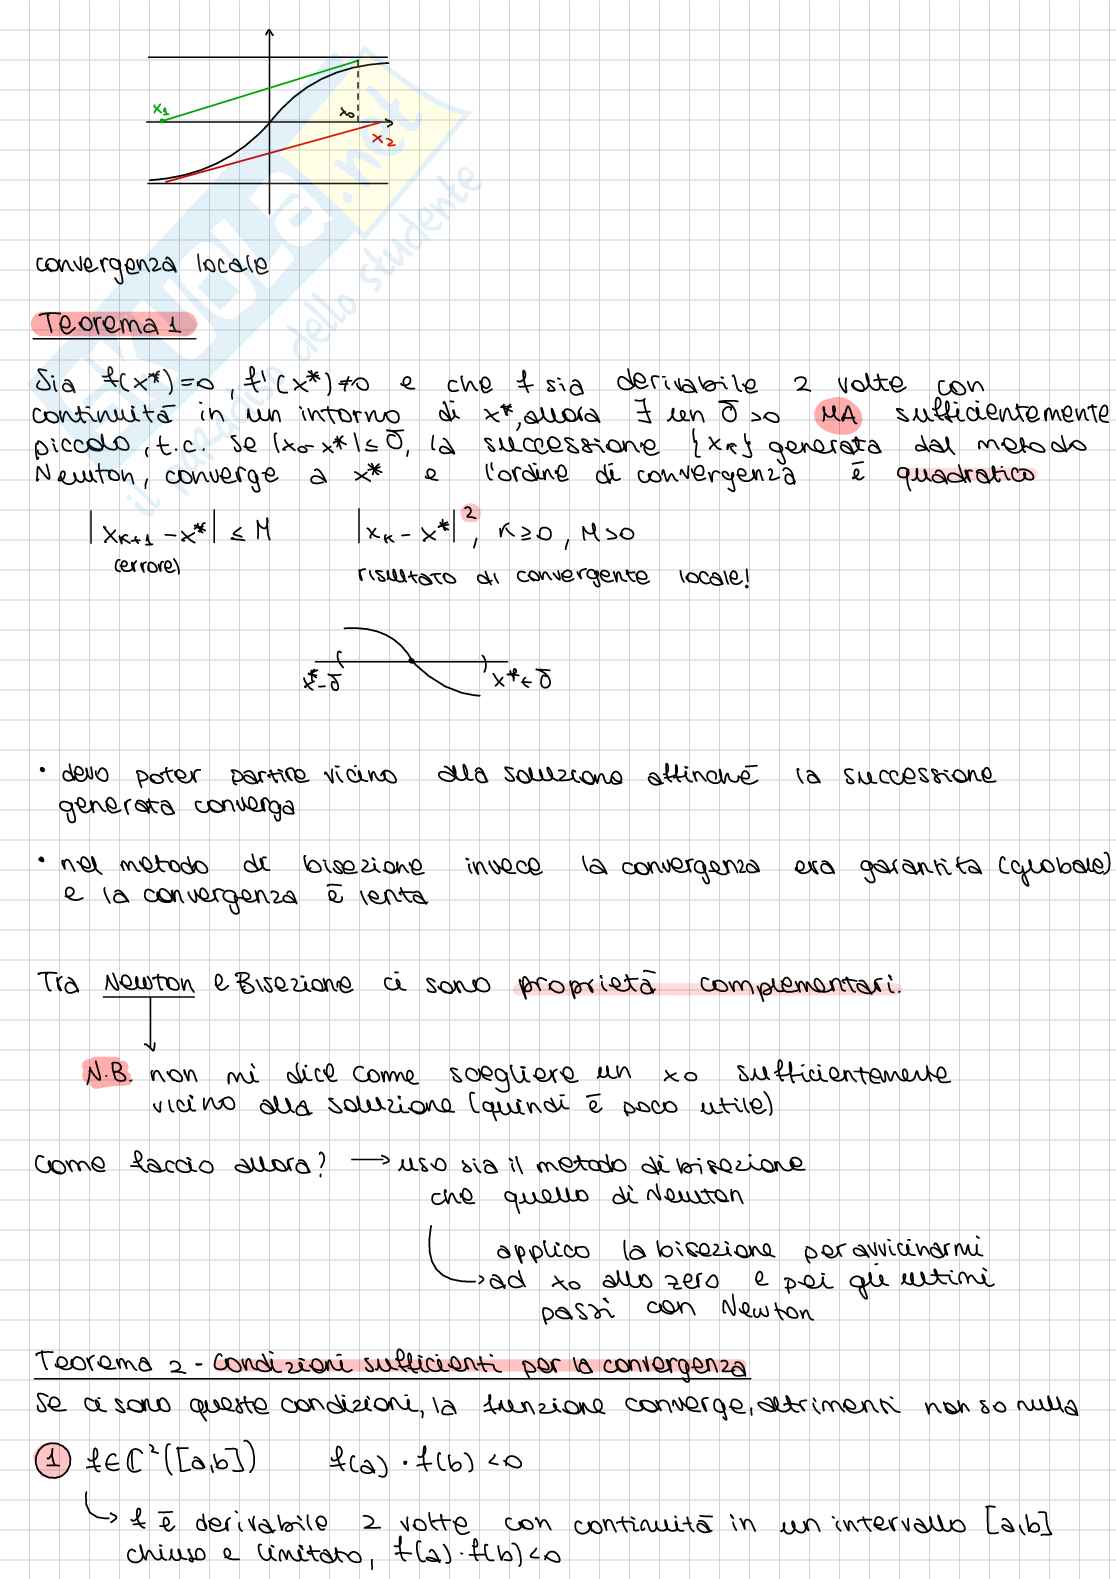 x₁
x₀
x₂
convergenza locale
Teorema 1
Sia f(x*)=0, f'(x*)≠0 e che f sia derivabile 2 volte con
continuità in un intorno di x*, allora ∃ un δ>0 MA sufficientemente
piccolo, t.c. se |x₀-x*|≤δ, la successione {xₖ} generata dal metodo
Newton, converge a x* e l'ordine di convergenza è quadratico
|xₖ₊₁-x*| ≤ M |xₖ-x*|², k≥0, M>0
(errore)
risultato di convergente locale!
x*-δ x*+δ
• devo poter partire vicino alla soluzione affinché la successione
generata converga
• nel metodo di bisezione invece la convergenza era garantita (globale)
e la convergenza è lenta
Tra Newton e Bisezione ci sono proprietà complementari.
N.B. non mi dice come scegliere un x₀ sufficientemente
vicino alla soluzione (quindi è poco utile)
Come faccio allora? → uso sia il metodo di bisezione
che quello di Newton
applico la bisezione per avvicinarmi
→ ad x₀ allo zero e poi gli ultimi
passi con Newton
Teorema 2 - Condizioni sufficienti per la convergenza
Se ci sono queste condizioni, la funzione converge, altrimenti non so nulla
1 f∈ℂ²([a,b]) f(a)·f(b)<0
→ f è derivabile 2 volte con continuità in un intervallo [a,b]
chiuso e limitato, f(a)·f(b)<0
skuola.net
il meglio dello studente